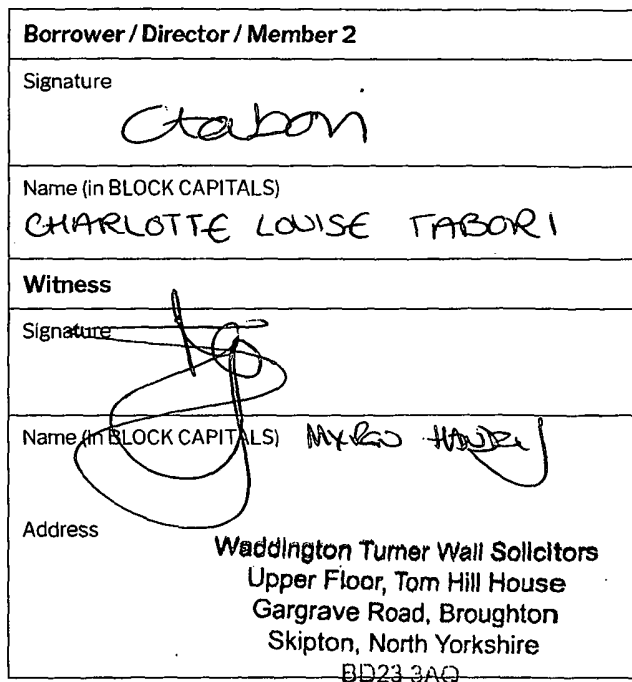 Borrower / Director / Member 2
Signature
Ctabori
Name (in BLOCK CAPITALS)
CHARLOTTE LOUISE TABORI
Witness
Signature
Name (in BLOCK CAPITALS)
Address
Waddington Turner Wall Solicitors
Upper Floor, Tom Hill House
Gargrave Road, Broughton
Skipton, North Yorkshire
BD23 3AQ